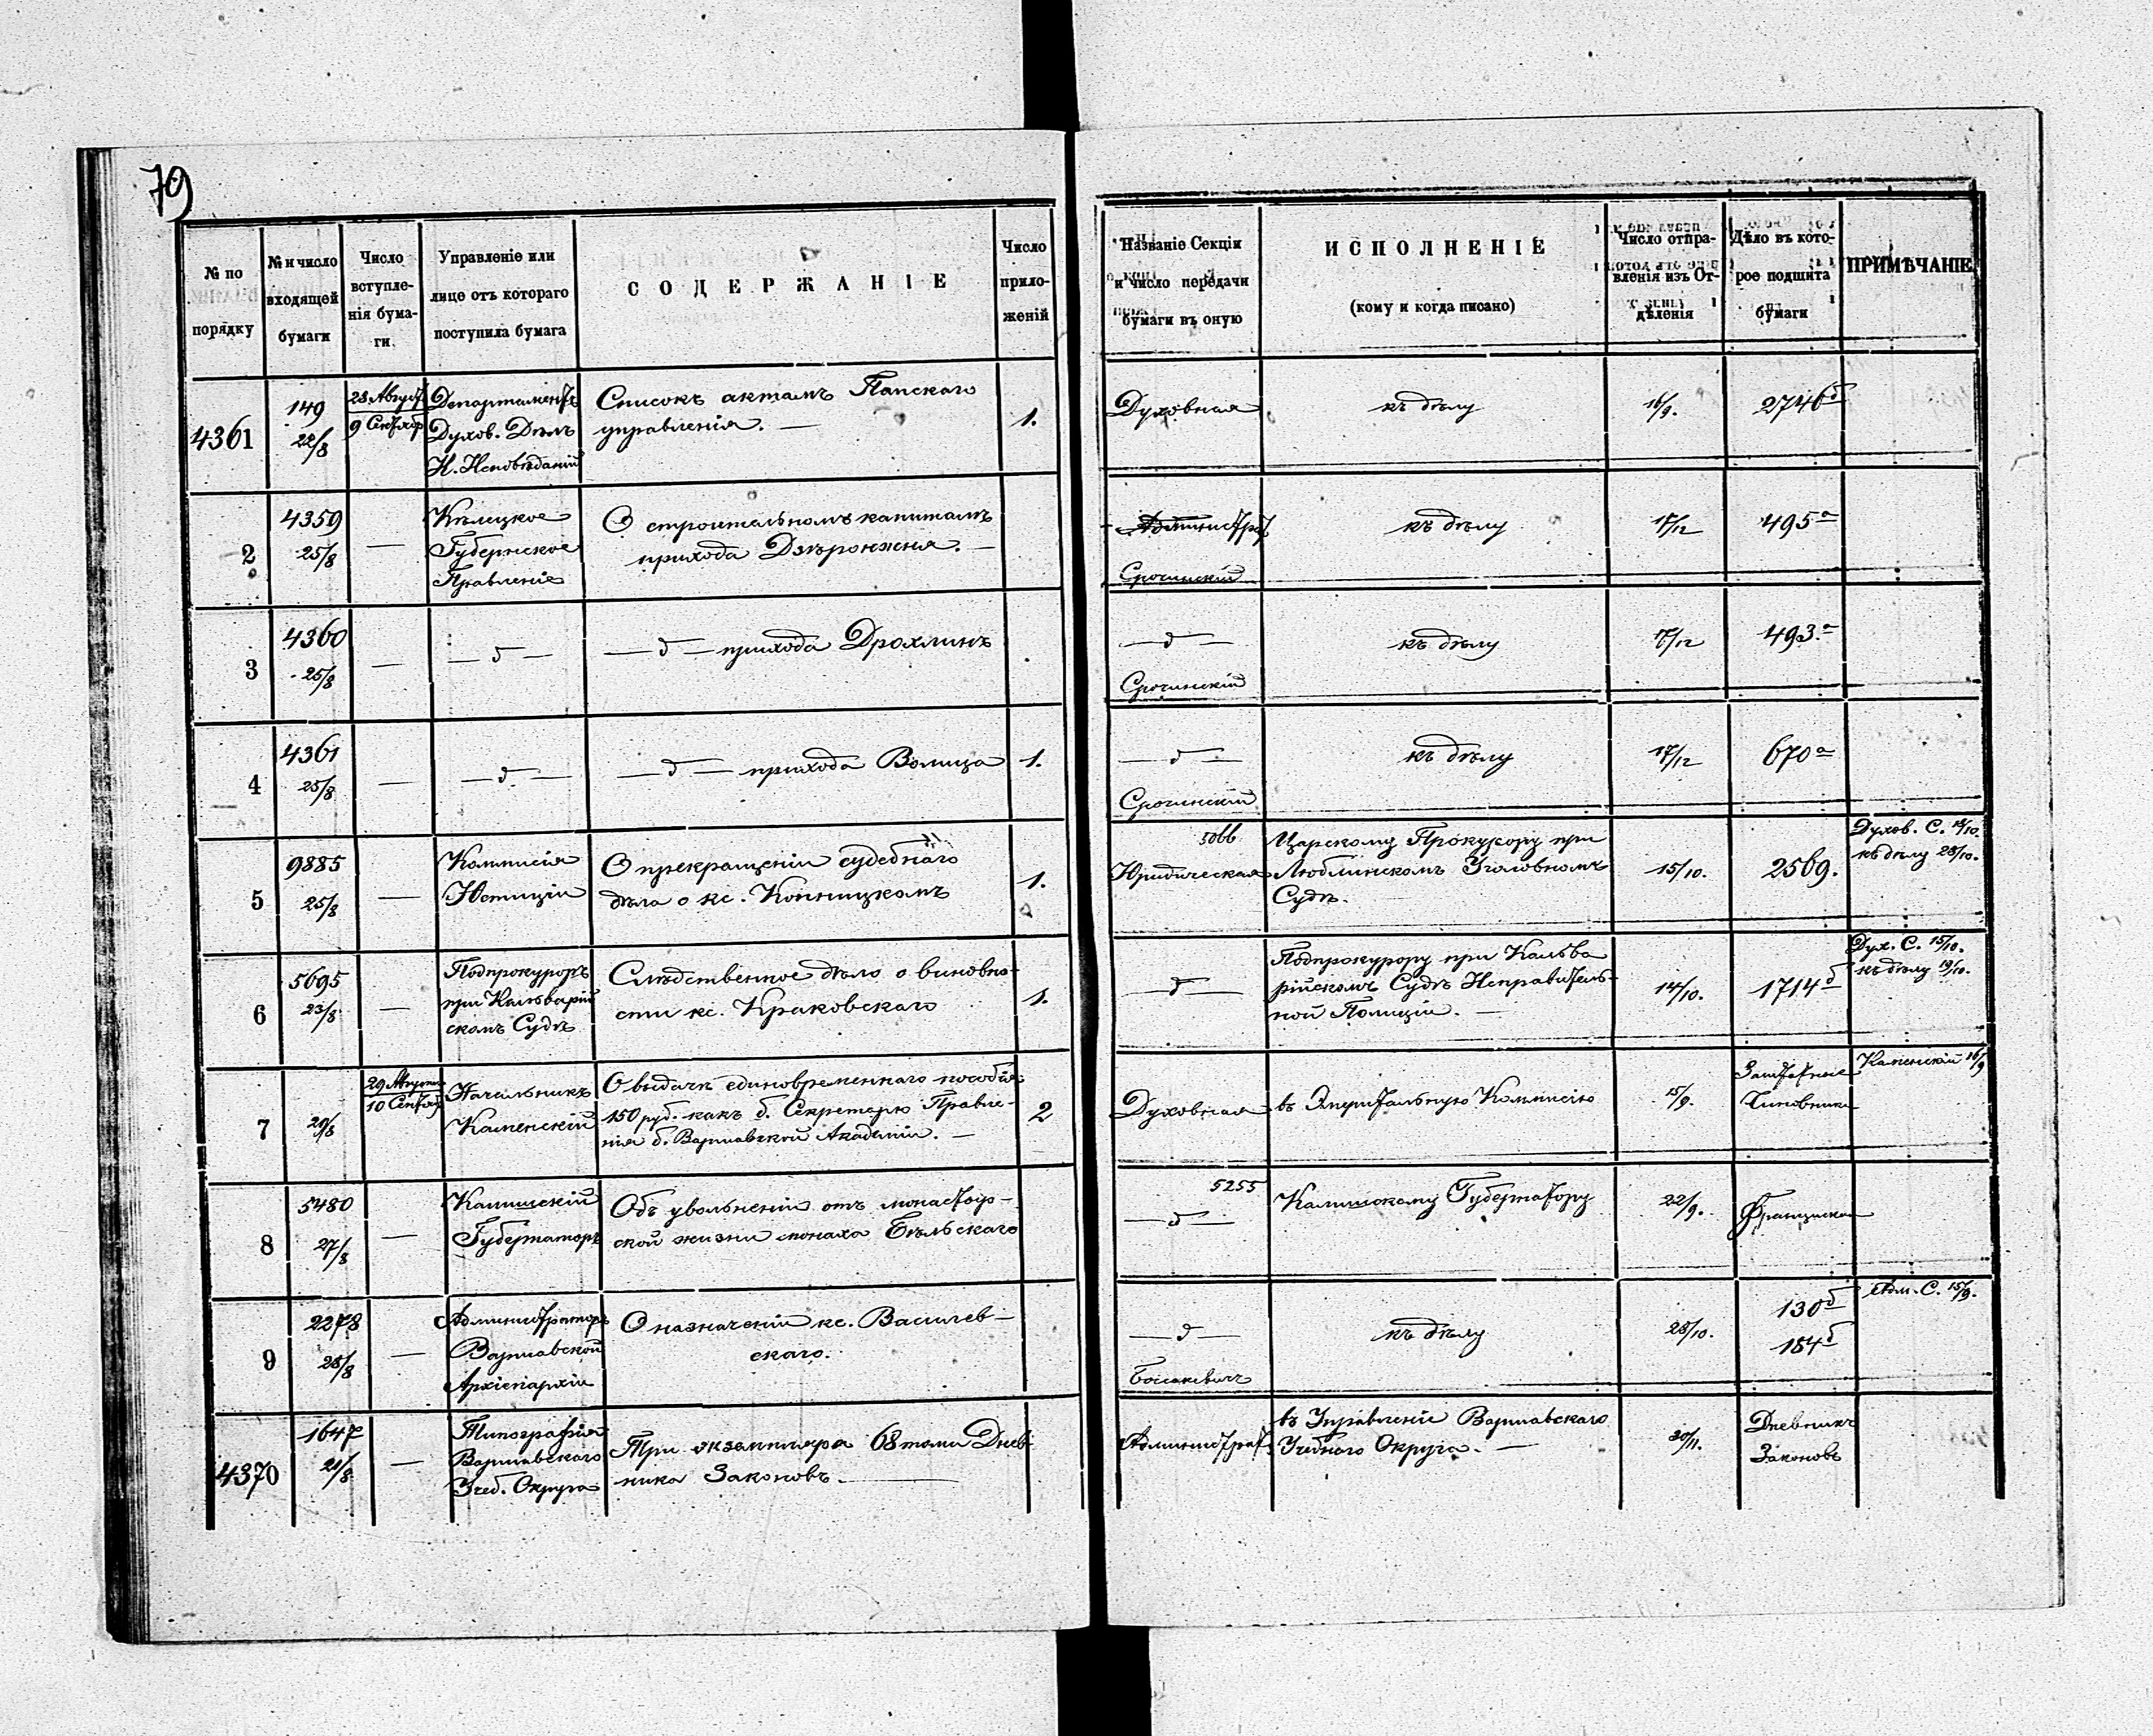 79
№ по порядку
№ и число входящей бумаги
Число вступле-нія бума-ги.
Управленіе или лице отъ котораго поступила бумага
СОДЕРЖАНІЕ
Число прило-женій
Названіе Секціи и число передачи бумаги въ оную
ИСПОЛНЕНІЕ
(кому и когда писано)
Число отпра-вленія изъ От-дѣленія
Дѣло въ кото-рое подшита бумаги
ПРИМѢЧАНІЕ
4361
149
22/8
28 Август
9 Сентяб
Департаментъ
Духов. Дѣлъ
И. Исповѣданій
Списокъ актамъ Папскаго
управленія. —
1.
Духовная
къ дѣлу
16/9.
2746б
2
4359
25/8
—
Кѣлецкое
Губернское
Правленіе
О строительномъ капиталѣ
прихода Дзѣронжня. —
Администрат
Срочинскій
къ дѣлу
17/12
495а
3
4360
25/8
—
— д —
— д — прихода Дрохлинъ
— д —
Срочинскій
къ дѣлу
17/12
493.а
4
4361
25/8
—
— д —
— д — прихода Волица
1.
— д —
Срочинскій
къ дѣлу
17/12
670а
5
9885
25/8
—
Коммисія
Юстиціи
О прекращеніи судебнаго
дѣла о кс. Конницкомъ
1.
5066
Юридическая
Царскому Прокурору при
Люблинскомъ Уголовномъ
Судѣ.
15/10.
2569.
Духов. С. /10.
къ дѣлу 28/10.
6
5695
23/8
—
Подпрокуроръ
при Кальварій
скомъ Судѣ
Слѣдственное дѣло о виновно-
сти кс. Краковскаго
1.
— д —
Подпрокурору при Кальва
рійскомъ Судѣ Исправитель-
ной Полиціи. —
14/10.
1714б
Дух. С. 15/10.
къ дѣлу 19/10.
7
29/8
29 Августа
10 Сентяб
Начальникъ
Каменскій
О выдачѣ единовременнаго пособія
150 руб. какъ б. Секретарю Правле-
нія б. Варшавской Академіи. —
2
Духовная
въ Эмеритальную Коммисію
15/9.
Заштатные
Чиновники
Каменскій 16/9
8
5480
27/8
—
Калишскій
Губернаторъ
Объ увольненіи отъ монастыр-
ской жизни монаха Бѣльскаго
5255
— д —
Калишскому Губернатору
22/9.
9
2278
28/8
—
Администраторъ
Варшавской
Архіепархіи
О назначеніи кс. Василев-
скаго.
— д —
къ дѣлу
28/10.
130б
184б
Адм. С. 15/9.
4370
1647
21/8
—
Типографія
Варшавскаго
Учеб. Округа
Три экземпляра 68 тома Днев-
ника Законовъ. —
Администрат
въ Управленіе Варшавскаго
Учебнаго Округа. —
30/11.
Дневникъ
Законовъ